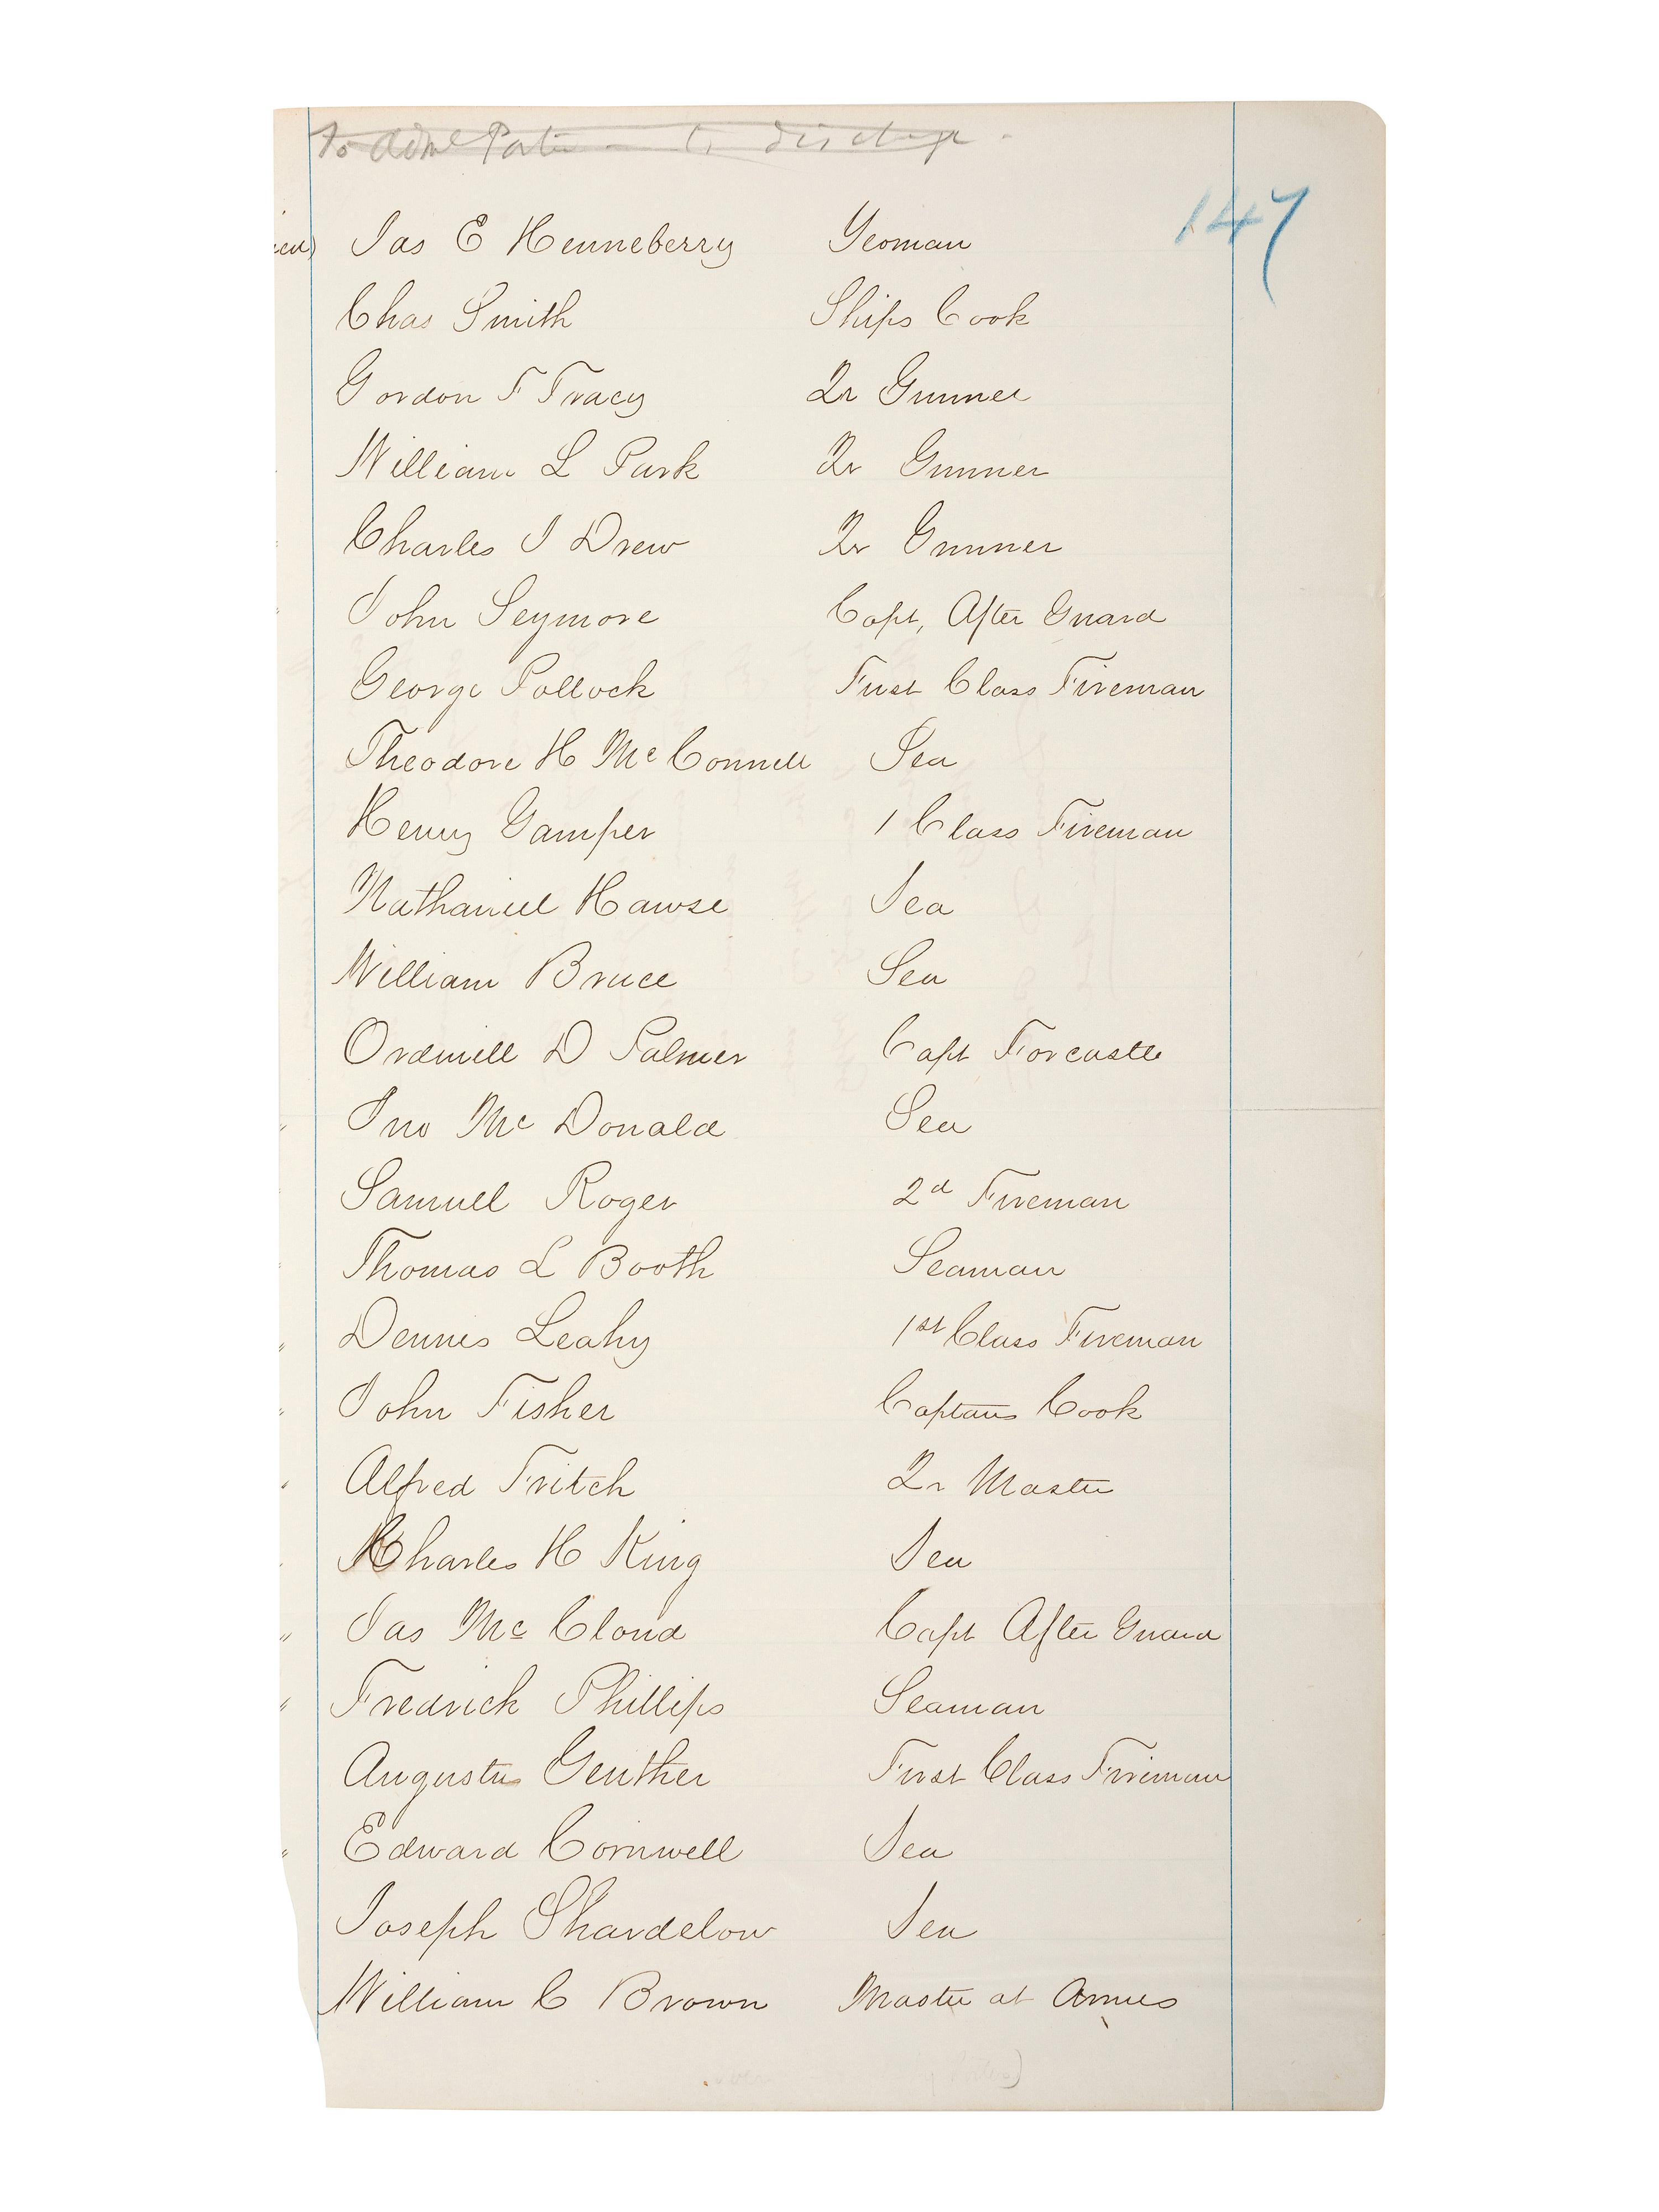 To Adml Porter to discharge
147
Jas E Henneberry Yeoman
Chas Smith Ships Cook
Gordon F Tracy Qr Gunner
William L Park Qr Gunner
Charles J Drew Qr Gunner
John Seymore Capt, After Guard
George Pollock First Class Fireman
Theodore H McConnell Sea
Henry Gamper 1 Class Fireman
Nathaniel Hawse Sea
William Bruce Sea
Ordmill D Palmer Capt Forcastle
Jno McDonald Sea
Samuel Roger 2d Fireman
Thomas L Booth Seaman
Dennis Leahy 1st Class Fireman
John Fisher Captains Cook
Alfred Fritch Qr Master
Charles H King Sea
Jas McCloud Capt After Guard
Fredrick Phillips Seaman
Augustus Genther First Class Fireman
Edward Cornwell Sea
Joseph Shardelow Sea
William C Brown Master at Arms